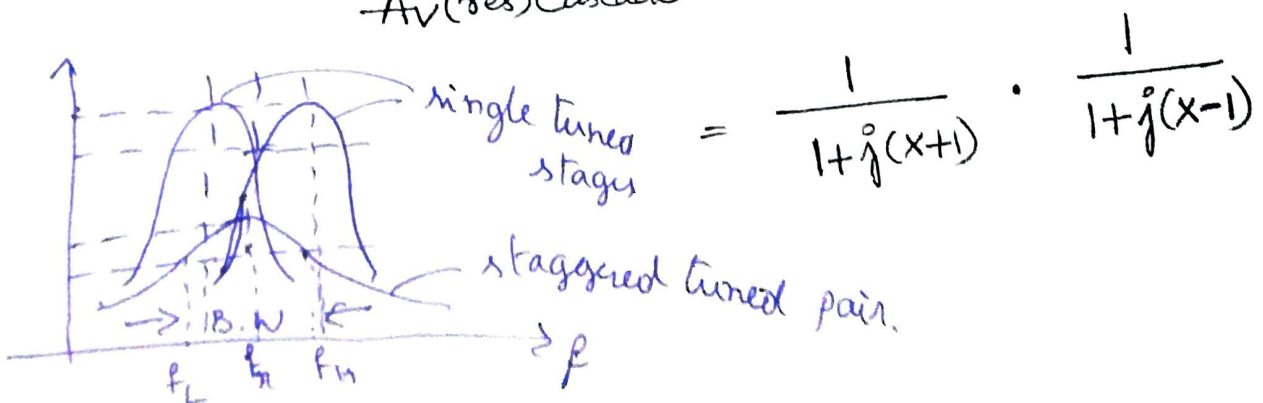 Av(res)
single tuned stages
= 1/(1+j(x+1)) · 1/(1+j(x-1))
staggered tuned pair.
B.W
f
fL fr fH